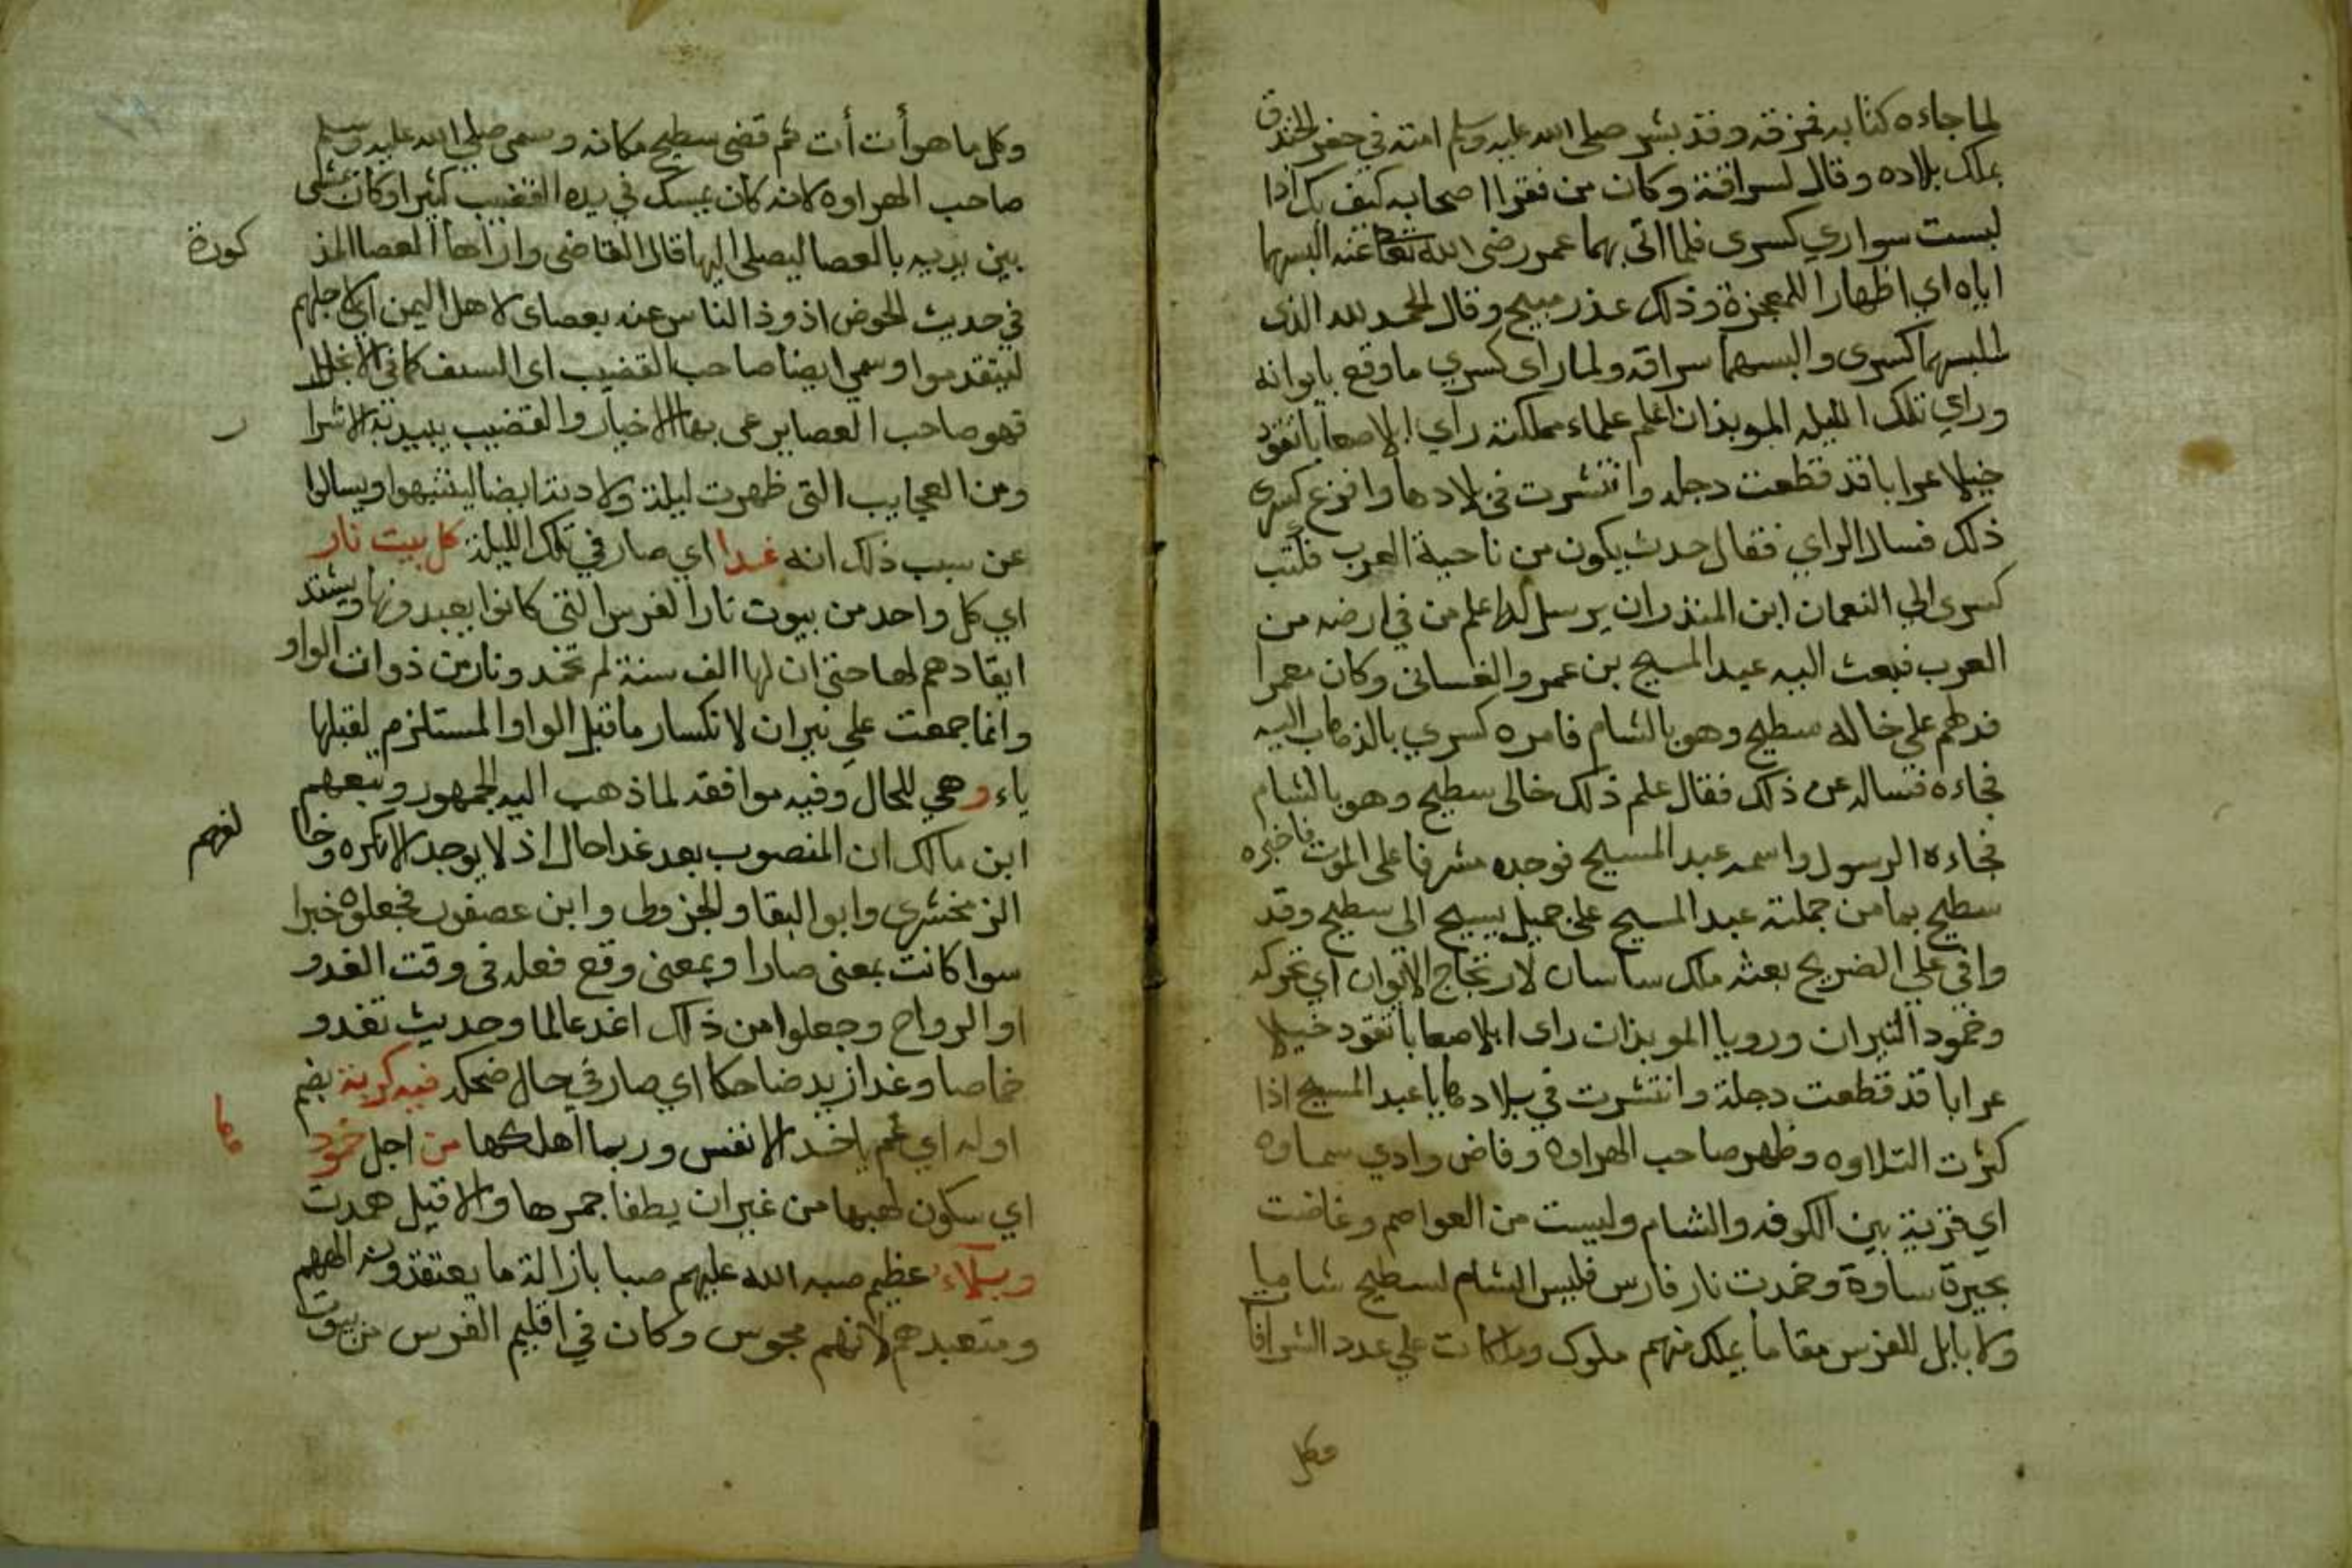 لما جاءه كتابه فمزقه وقد بشر صلى الله عليه وسلم امته في حفر الخندق
بملك بلاده وقال لسراقة وكان من فقرا اصحابه كيف بك اذا
لبست سواري كسرى فلما اتى بهما عمر رضى الله تعالى عنه البسهما
اياه اي اظهارا للمعجزة وذلك عذر مبيح وقال الحمد لله الذى
سلبهما كسرى والبسهما سراقه ولما راى كسري ما وقع بايوانه
وراي تلك الليله الموبذان اعلم علماء مملكته راي ابلا صعابا تقود
خيلا عرابا قد قطعت دجله وانتشرت في بلادها وافزع كسرى
ذلك فسال الراي فقال حدث يكون من ناحية العرب فكتب
كسرى الي النعمان ابن المنذر ان يرسل له اعلم من في ارضه من
العرب فبعث اليه عبد المسيح بن عمرو الغسانى وكان معمرا
فدلهم على خاله سطيح وهو بالشام فامره كسري بالذهاب اليه
فجاءه فساله عن ذلك فقال علم ذلك خالى سطيح وهو بالشام
فجاءه الرسول واسمه عبد المسيح فوجده مشرفا على الموت فاخبره
سطيح بما من جملته عبد المسيح على جميل يسيح الى سطيح وقد
وافى علي الضريح بعثه ملك ساسان لارتجاج الايوان اي تحركه
وخمود النيران ورويا الموبذان راى ابلا صعابا تقود خيلا
عرابا قد قطعت دجلة وانتشرت في بلادها يا عبد المسيح اذا
كثرت التلاوه وظهر صاحب الهراوه وفاض وادي سماوه
اي قرية بين الكوفه والشام وليست من العواصم وغاضت
بحيرة ساوة وخمدت نار فارس فليس الشام لسطيح شاميا
ولا بابل للفرس مقاما يملك منهم ملوك وملكات علي عدد الشرافا
وكل
وكل ما هو أت أت ثم قضى سطيح مكانه وسمى صلى الله عليه وسلم
صاحب الهراوه لانه كان يمسك في يده القضيب كثيرا وكان يمشى
بين يديه بالعصا ليصلى اليها قال القاضى واراها العصا المذ
كورة
في حديث الحوض اذوذ الناس عنه بعصاى لاهل اليمن اي لاجلهم
ليتقدموا وسمي ايضا صاحب القضيب اى السيف كما في الانجيل
فهو صاحب العصا يرعى بها الاخيار والقضيب يبيد به الاشرا
ر
ومن العجايب التى ظهرت ليلة ولادته ايضا لينتبهوا ويسالوا
عن سبب ذلك انه غدا اي صار في تلك الليلة كل بيت نار
اي كل واحد من بيوت نار الفرس التى كانوا يعبدونها ويشتد
ايقادهم لها حتى ان لها الف سنة لم تخمد ونار من ذوات الواو
وانما جمعت علي نيران لانكسار ما قبل الواو المستلزم لقبلها
ياء وهي للحال وفيه موافقه لما ذهب اليه الجمهور وتبعهم
ابن مالك ان المنصوب بعد غدا حال اذ لا يوجد الا نكره وخا
لفهم
الزمخشرى وابو البقا والجزولى وابن عصفور فجعلوه خبرا
سوا كانت بمعنى صار او بمعنى وقع فعله فى وقت الغدو
او الرواح وجعلوا من ذلك اغد عالما وحديث تغدو
خماصا وغدا زيد ضاحكا اي صار في حال ضحكه فيه كربة بضم
اوله اي غم ياخذ الانفس وربما اهلكها من اجل خمود
ها
اي سكون لهبها من غير ان يطفا جمرها والا قيل همدت
وبلاء عظيم صبه الله عليهم صبا بازالة ما يعتقدونه الههم
ومتعبدهم لانهم مجوس وكان في اقليم الفرس من بيوت